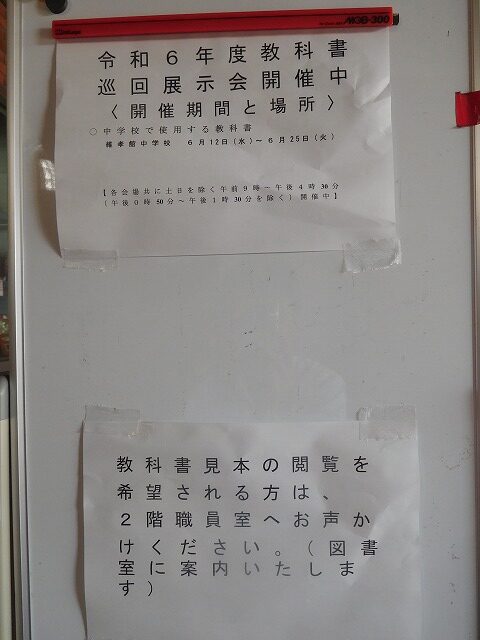 MGB-300
令和６年度教科書
巡回展示会開催中
〈開催期間と場所〉
○中学校で使用する教科書
稚孝館中学校　６月12日（水）～６月25日（火）
【各会場共に土日を除く午前９時～午後４時30分
（午後０時50分～午後１時30分を除く）開催中】
教科書見本の閲覧を
希望される方は、
２階職員室へお声か
けください。（図書
室に案内いたしま
す）